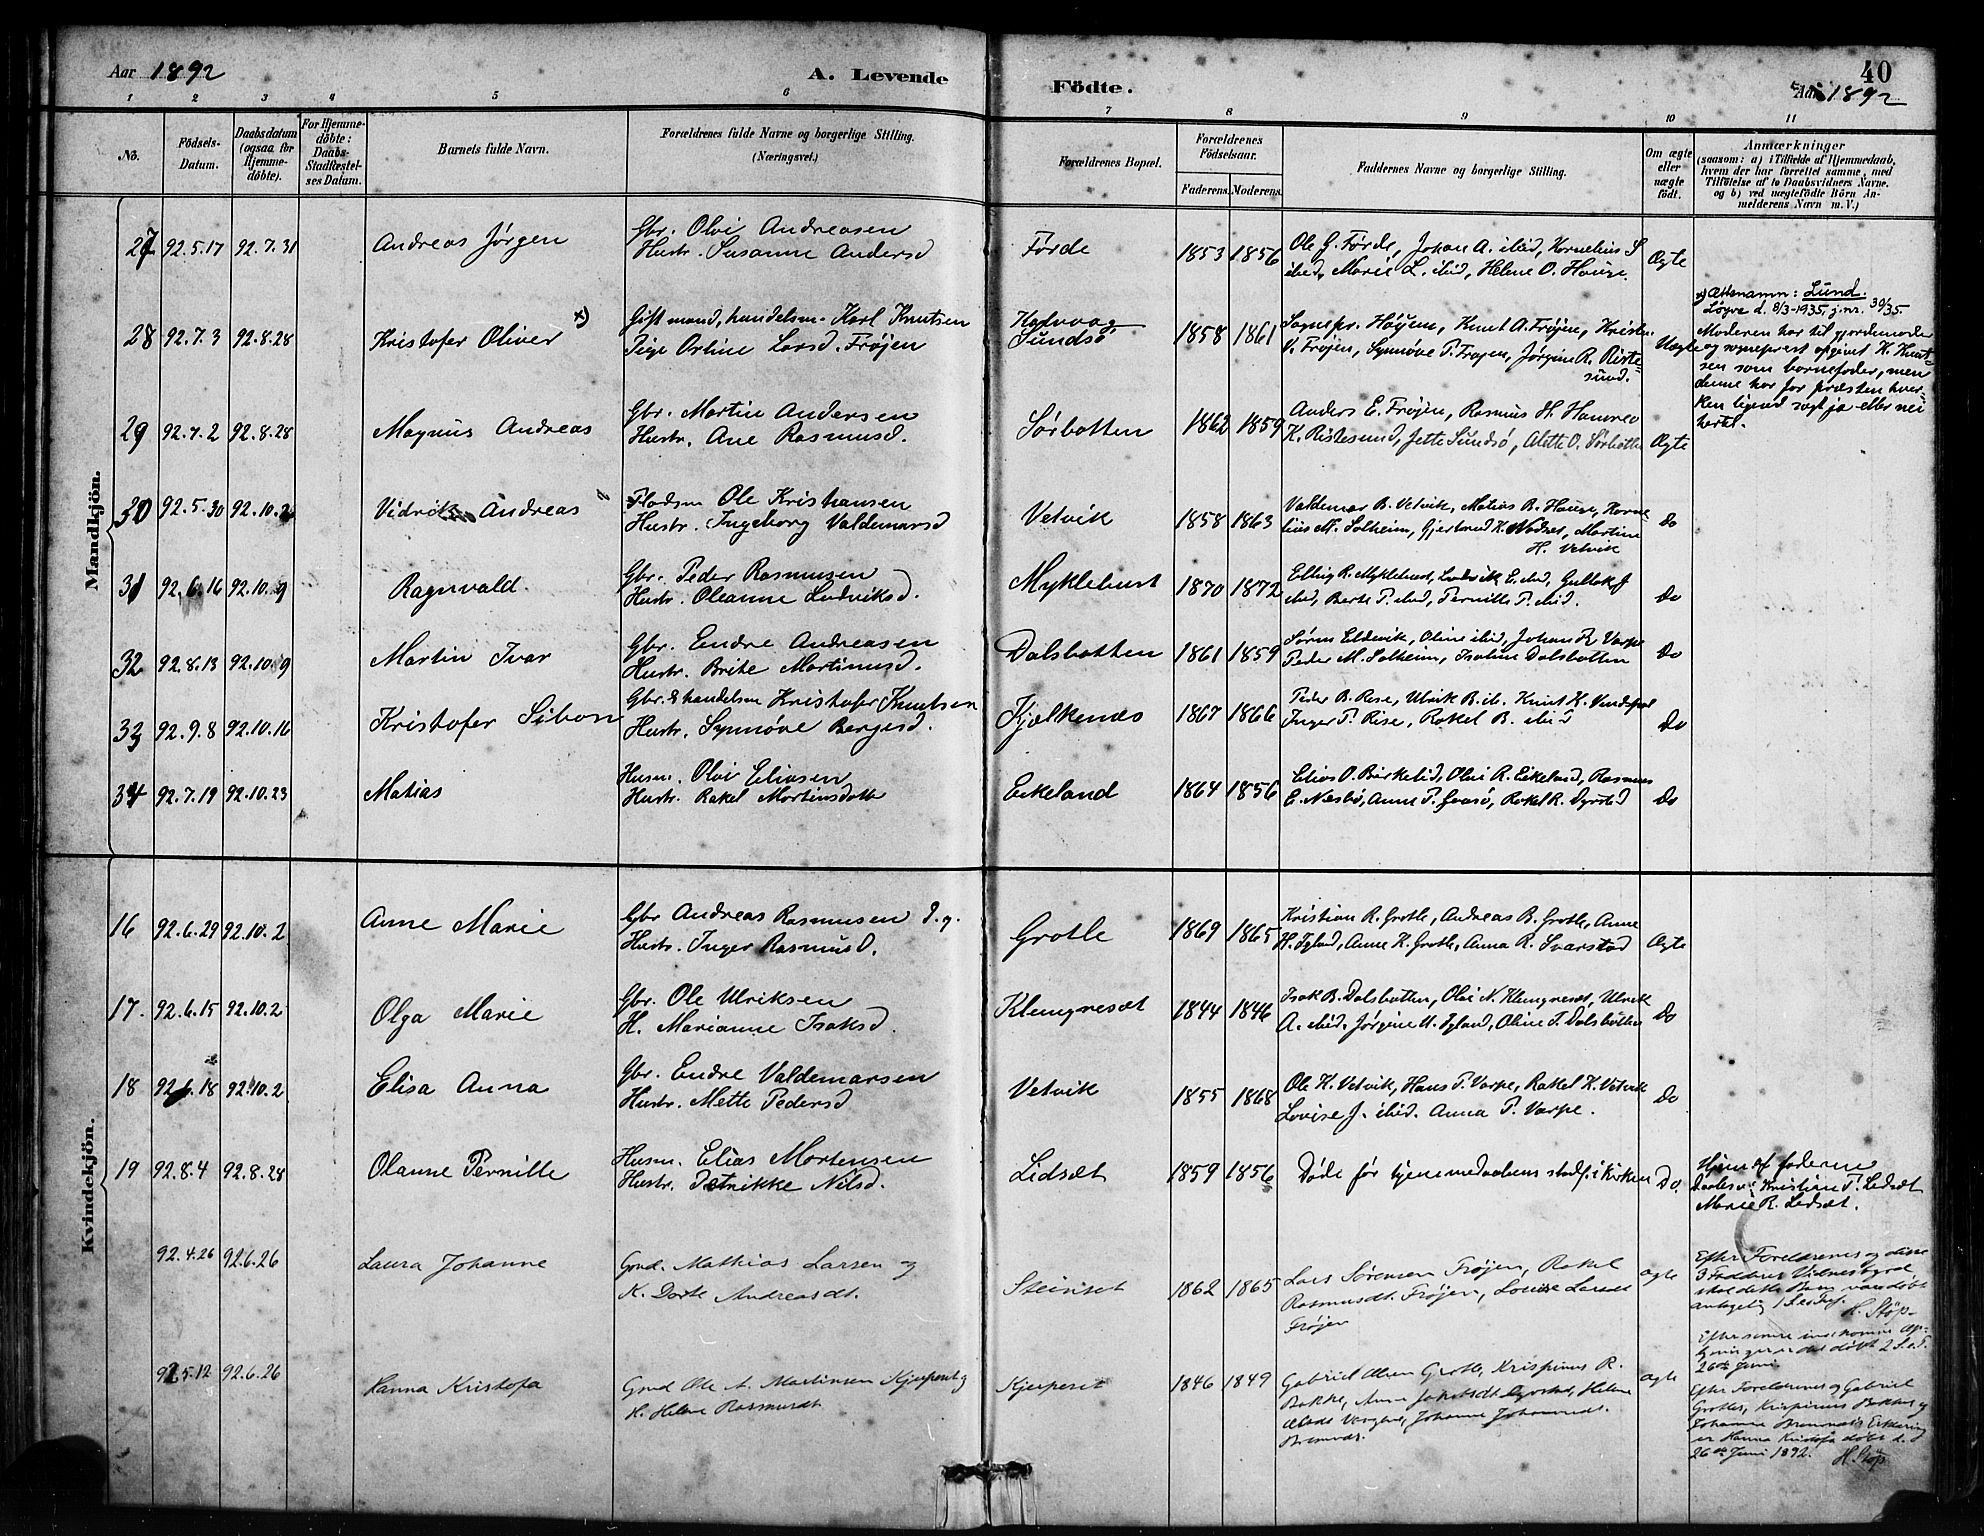 Aar 1892
A. Levende
Födte.
40
Aar 1892
1 2 3 4 5 6 7 8 9 10 11
No.
Födsels-Datum.
Daabsdatum (ogsaa for Hjemme-döbte).
For Hjemme-döbte: Daabs-Stadfæstel-ses Datum.
Barnets fulde Navn.
Forældrenes fulde Navne og borgerlige Stilling. (Næringsvei.)
Forældrenes Bopæl.
Forældrenes Födselsaar.
Faderens. Moderens.
Faddernes Navne og borgerlige Stilling.
Om ægte eller uægte födt.
Anmærkninger
(saasom: a) i Tilfælde af Hjemmedaab,
hvem der har forrettet samme, med
Tilföielse af to Daabsvidners Navne.
og b) ved uægtefödte Börn An-
melderens Navn m. V.)
Mandkjön.
27 92.5.17 92.7.31 Andreas Jørgen
Gbr. Olai Andreasen
Hustr. Susanne Andersd
Førde 1853 1856
Ole G. Førde, Johan A. ibid, Kornelius S
ibid, Marie L. ibid, Helene O. Hauge
Ægte
28 92.7.3 92.8.28 Kristofer Oliver x)
Gift mand, handelsm. Karl Knutsen
Pige Orline Larsd. Frøjen
Kalvaag
Sundsø 1858 1861
Sognepr. Høyem, Knut A. Frøjen, Kristen
V. Frøjen, Synnøve P. Frøjen, Jørgine R. Riste-
sund.
Uægte
x) Ættenamn: Lund.
Løyve d. 8/3-1935, j.nr. 30/35.
Moderen har til gjordemoder
og sogneprest opgivet K. Knut-
sen som barnefader, men
denne har for præsten hver-
ken ligend sagt ja eller nei
hertil.
29 92.7.2 92.8.28 Magnus Andreas
Gbr. Martin Andersen
Hustr. Ane Rasmusd.
Sørbotten 1862 1859
Anders E. Frøjen, Rasmus H. Hamre
K. Ristesund, Jette Sundsø, Alette O. Sørbotten
Ægte
30 92.5.30 92.10.2 Vidrik Andreas
Pladsm Ole Kristiansen
Hustr. Ingeborg Valdemarsd
Vetvik 1858 1863
Valdemar B. Vetvik, Matias R. Hauge, Korne-
lius M. Solheim, Gjertrud K. Nodset, Martine
H. Vetvik
Do
31 92.6.16 92.10.9 Ragnvald
Gbr. Peder Rasmusen
Hustr. Oleanne Ludviksd.
Myklebust 1870 1872
Elling R. Myklebust, Ludvik E. ibid, Gullak J
ibid, Berte P. ibid, Pernille P. ibid.
Do
32 92.8.13 92.10.9 Martin Ivar
Gbr. Endre Andreasen
Hustr. Brite Martinusd.
Dalsbotten 1861 1859
Søren Eldevik, Oline ibid, Johan R Varpe
Peder M. Solheim, Isaline Dalsbotten
Do
33 92.9.8 92.10.16 Kristofer Sibon
Gbr. & handelsm Kristofer Knutsen
Hustr. Synnøve Børgesd.
Kjelkenes 1867 1866
Peder B. Rise, Ulrik B. ib. Knut K. Vindspol
Inger P. Rise, Rakel B. ibid
Do
34 92.7.19 92.10.23 Matias
Husm. Olai Eliasen
Hustr. Rakel Martinsdatt
Eikeland 1864 1856
Elias O. Birkelid, Olai R. Eikeland, Rasmus
E. Næsbø, Anne P. Gaasø, Rakel R. Dyrstad
Do
Kvindekjön.
16 92.6.29 92.10.2 Anne Marie
Gbr Andreas Rasmusen d.y.
Hustr. Inger Rasmusd.
Grotle 1869 1865
Kristian R. Grotle, Andreas B. Grotle, Anne
H. Igland, Anne K. Grotle, Anna R. Svarstad
Ægte
17. 92.6.15 92.10.2 Olga Marie
Gbr. Ole Ulriksen
H. Marianne Isaksd.
Klemgnesæt 1844 1846
Isak B. Dalsbotten, Olai N. Klemgnesæt, Ulrik
A. ibid, Jørgine U. Igland, Oline T. Dalsbotten
Do
18 92.6.18 92.10.2 Elisa Anna
Gbr. Endre Valdemarsen
Hustr. Mette Pedersd
Vetvik 1855 1868
Ole K. Vetvik, Hans P. Varpe, Rakel K. Vetvik
Lovise J. ibid. Anna P. Varpe.
Do
19 92.8.4 92.8.28 Olanne Pernille
Husm. Elias Mortensen
Hustr. Petrikke Nilsd.
Lidsæt 1859 1856
Døde før hjemmedaabens stadf. i kirken Do.
Hjem af faderen
Daabsv. Kristian P. Ledsæt
Marie R. Ledsæt.
92.4.26 92.6.26 Laura Johanne
Gmd. Mathias Larsen og
K. Dorte Andreasdt.
Steinset 1862 1865
Lars Sørensen Frøjen, Rakel
Rasmusdt. Frøjen, Louise Larsdt
Frøjen
ægte
Efter Forældrenes og disse
3 Fadderes Vidnesbyrd
skal dette Barn være døbt
antagelig
H. Støp.
Efter senere indkomne Op-
lysninger er det døbt 2 S.e.T.
26de Juni
92.5.12 92.6.26 Hanna Kristofa
Gmd Ole A. Martinsen Kjerpeset og
K. Helene Rasmusdt
Kjerpeset 1846 1849
Gabriel Olsen Grotle, Krispinus R.
Bakke, Anne Jakobsdt Gjerstad, Helene
Johanne Johannesdt.
Bremnes.
ægte
Efter Forældrenes og Gabriel
Grotles, Krispinus Bakkes og
Johanne Bremnes's Erklæring
er Hanna Kristofa døbt d.
26de Juni 1892. H. Støp